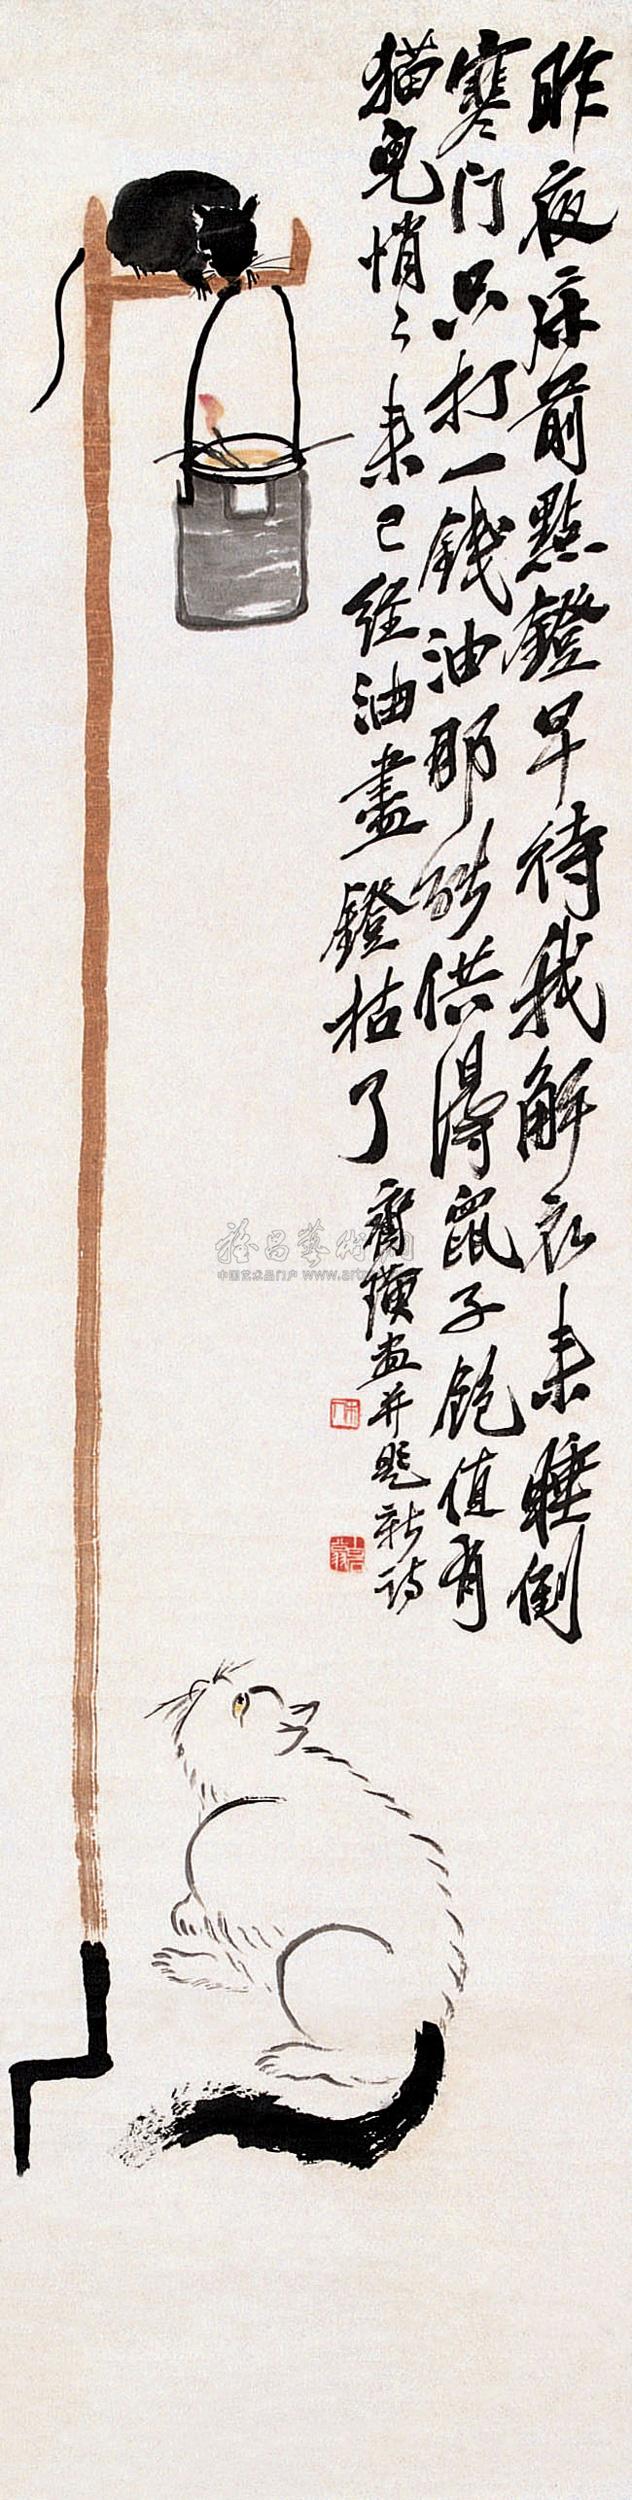 昨夜床前點鐙早待我解衣來睡倒
寒门只打一錢油那能供得鼠子飽值有
猫兒悄〻來已經油盡鐙枯了
齊璜畫并題新詩
中国艺术品门户 www.art